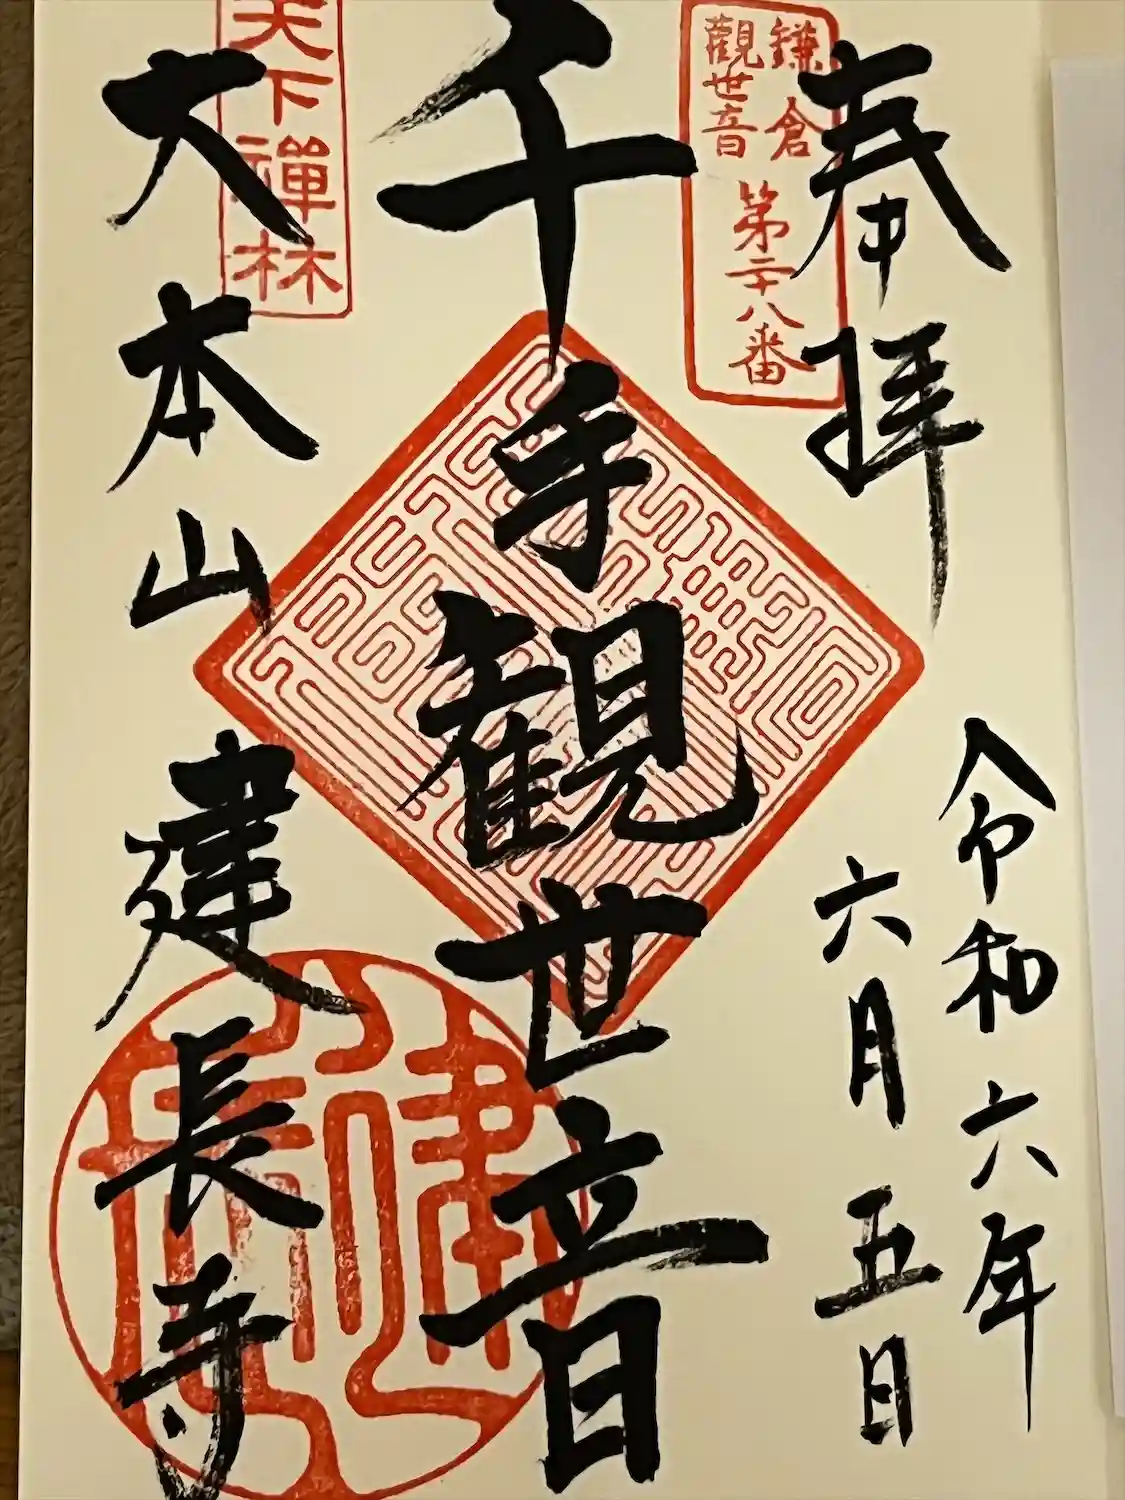 奉拝
鎌倉
觀世音
第二十八番
令和六年
六月五日
千手観世音
天下禅林
大本山建長寺